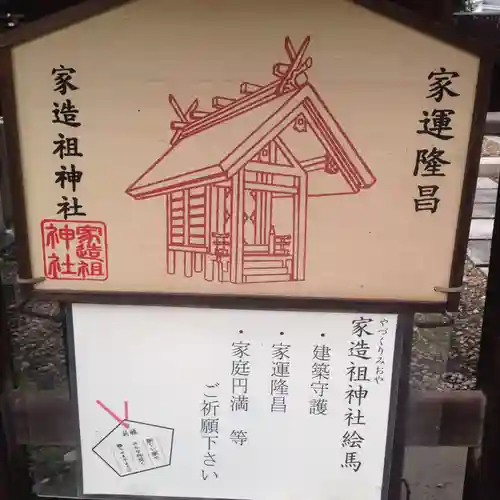 家運隆昌
家造祖神社
家造祖
神社
やづくりみおや
家造祖神社絵馬
・建築守護
・家運隆昌
・家庭円満 等
ご祈願下さい